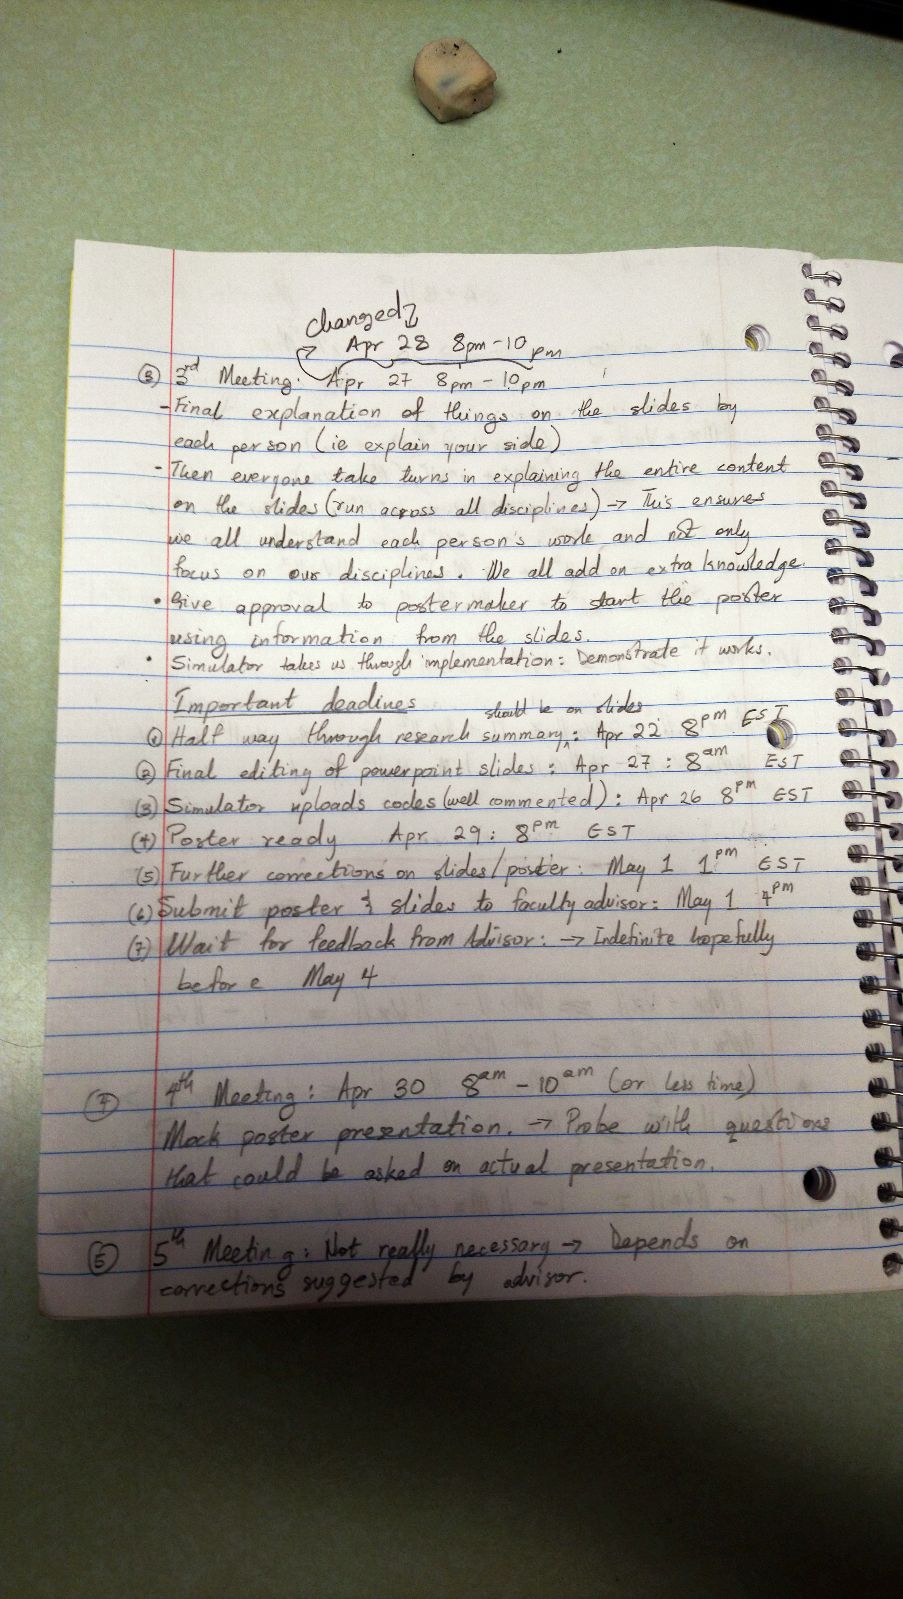 changed
Apr 28 8pm-10pm
③ 3rd Meeting: Apr 27 8pm - 10pm
- Final explanation of things on the slides by
each person (ie explain your side)
- Then everyone take turns in explaining the entire content
on the slides (run across all disciplines) → This ensures
we all understand each person's work and not only
focus on our disciplines. We all add on extra knowledge.
• Give approval to postermaker to start the poster
using information from the slides.
• Simulator takes us through implementation: Demonstrate it works.
Important deadines
should be on slides
(1) Half way through research summary ^: Apr 22 8pm EST
(2) Final editing of powerpoint slides: Apr 27: 8am EST
(3) Simulator uploads codes (well commented): Apr 26 8pm EST
(4) Poster ready Apr 29: 8pm EST
(5) Further corrections on slides/poster: May 1 1pm EST
(6) Submit poster & slides to faculty advisor: May 1 4pm
(7) Wait for feedback from Advisor: → Indefinite hopefully
before May 4
④ 4th Meeting: Apr 30 8am - 10am (or less time)
Mock poster presentation. → Probe with questions
that could be asked on actual presentation.
⑤ 5th Meeting: Not really necessary → Depends on
corrections suggested by advisor.